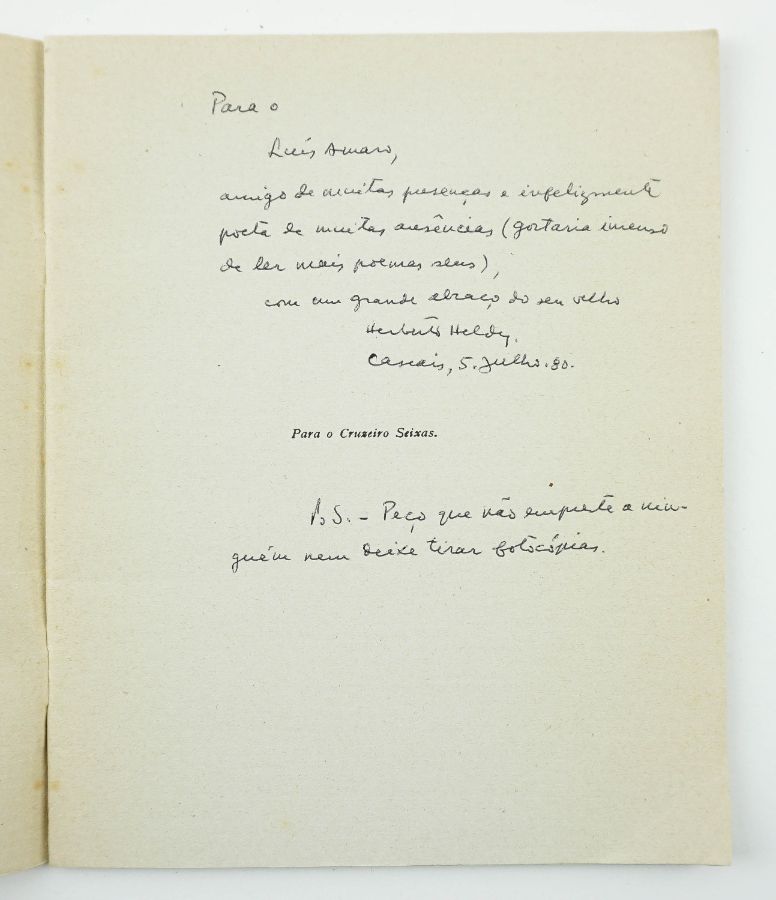 Para o
Luís Amaro,
amigo de muitas presenças e infelizmente
poeta de muitas ausências (gostaria imenso
de ler mais poemas seus),
com um grande abraço do seu velho
Herberto Helder.
Cascais, 5. Julho. 80.
Para o Cruzeiro Seixas.
P.S. – Peço que não empreste a nin-
guém nem deixe tirar fotocópias.